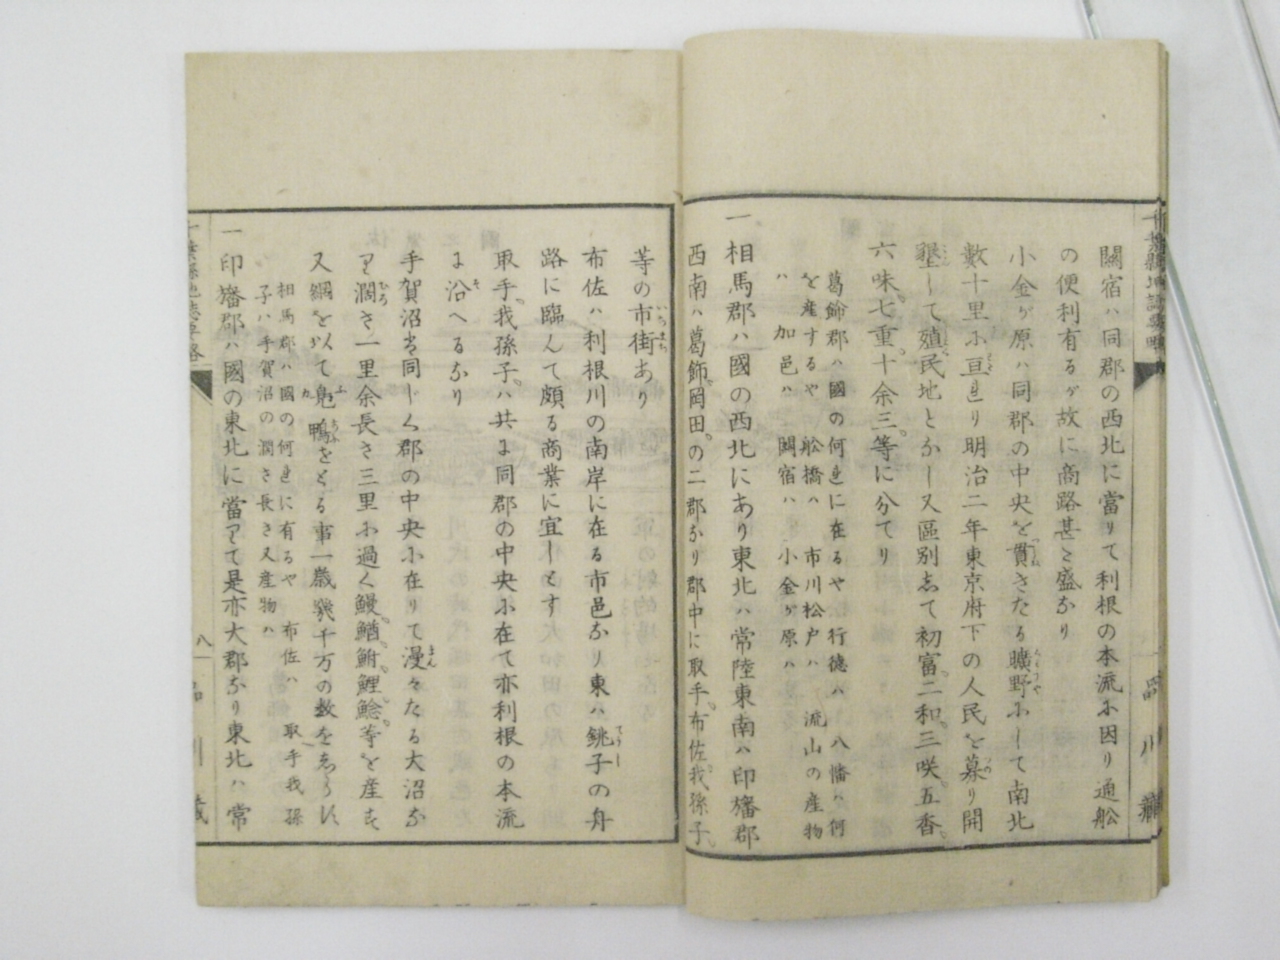 關宿ハ同郡の西北に當りて利根の本流ふ因り通舩
の便利有るが故に商路甚だ盛なり
小金が原ハ同郡の中央を貫きたる曠野ふーて南北
數十里ふ亘れり明治二年東京府下の人民を募り開
墾して殖民地となし又區別志て初富二和三咲五香
六味七重十余三等に分てり
葛飾郡ハ國の何れに在るや 行德ハ 八幡ハ何
を産するや 舩橋ハ 市川松戸ハ 流山の産物
ハ 加邑ハ 關宿ハ 小金が原ハ
一 相馬郡ハ國の西北にあり東北ハ常陸東南ハ印旛郡
西南ハ葛飾岡田の二郡なり郡中に取手布佐我孫子
等の市街あり
布佐ハ利根川の南岸に在る市邑なり東ハ銚子の舟
路に臨んて頗る商業に宜しとす
取手我孫子ハ共に同郡の中央ふ在て亦利根の本流
に沿へるなり
手賀沼も同じく郡の中央ふ在りて漫々たる大沼な
り濶さ一里余長さ三里ふ過く鰻鰌鮒鯉鯰等を産す
又網を以て鳬鴨をとる事一歳幾千万の数を志らず
相馬郡ハ國の何れに有るや 布佐ハ 取手我孫
子ハ手賀沼の濶さ長さ又産物ハ
一 印旛郡ハ國の東北に當りて是亦大郡なり東北ハ常
八